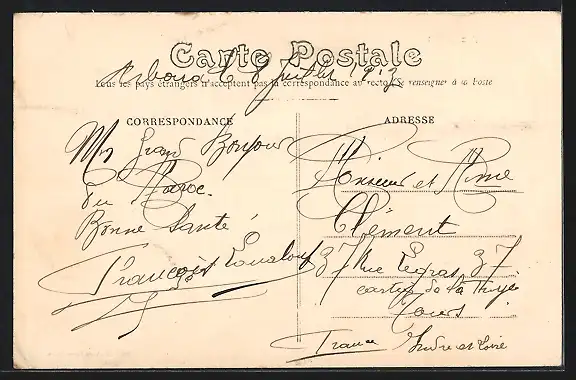 Carte Postale
le 8 Juillet 1913
Tous les pays étrangers n'acceptent pas la correspondance au recto (Se renseigner à la Poste
CORRESPONDANCE
ADRESSE
Mon Grand Bonjour
du Maroc.
Bonne Santé
François
Monsieur et Mme
Clément
37 Rue Legras 37
de la
Tours
France Indre et Loire